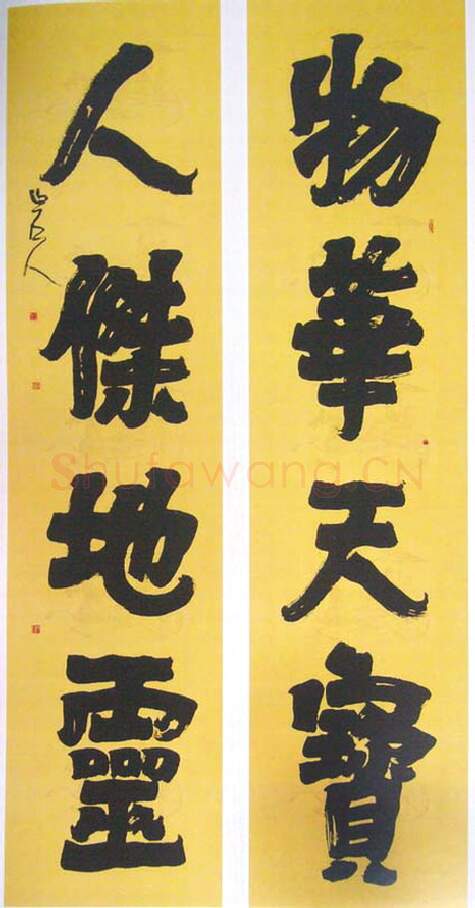 物華天寶
人傑地靈
山石人
Shufawang.CN